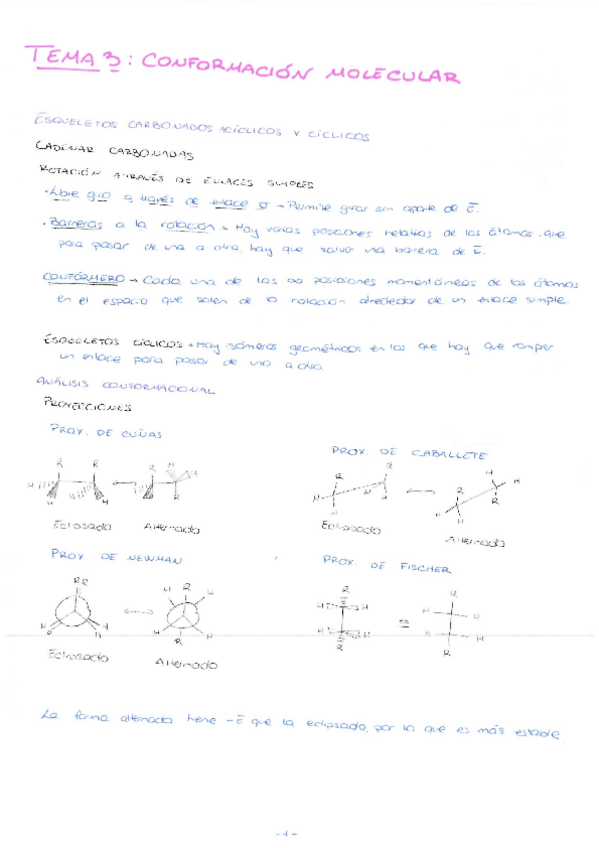 TEMA 3: CONFORMACIÓN MOLECULAR
ESQUELETOS CARBONADOS ACÍCLICOS Y CÍCLICOS
CADENAR CARBONADAS
ROTACIÓN A TRAVÉS DE ENLACES SIMPLES
·Libre giro a través de enlace σ → Permite girar sin aporte de E.
·Barreras a la rotación → Hay varias posiciones relativas de los átomos, que
para pasar de una a otra, hay que salvar una barrera de E.
CONFÓRMERO → Cada una de las ∞ posiciones momentáneas de los átomos
en el espacio que salen de la rotación alrededor de un enlace simple.
ESQUELETOS CÍCLICOS → Hay isómeros geométricos en los que hay que romper
un enlace para pasar de uno a otro.
ANÁLISIS CONFORMACIONAL
PROYECCIONES
PROY. DE CUÑAS
PROY. DE CABALLETE
R R R H
H H R
Eclipsado Alternado
R R H H
H R H
Eclipsado Alternado
PROY DE NEWMAN
PROY DE FISCHER
RR H R H
H H H R H
Eclipsado Alternado
R R
H H H H
H H H H
R R
La forma alternada tiene -E que la eclipsada, por lo que es más estable.
-1-